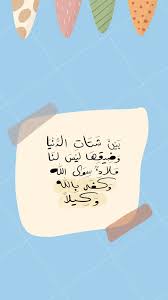 بين شتات الدنيا
وضيقها ليس لنا
ملاذ سوى الله
وكفى بالله
وكيلاً